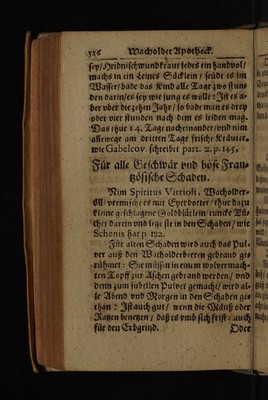 526 Wacholder Apotheck.
sey/ Heidnischwundkraut jedes ein handvol/
machs in ein kleines Säcklein/ seüde es im
Wasser/ bade das Kind alle Tage zwo stunden
darin/ es sey wie jung es wolle: Ist es aber
über die zehen Jahr/ so bade man es drey
oder vier stunden nach dem es leiden mag.
Das thue 14. Tage nacheinander/ und nim
allewege am dritten Tage frische Kräuter,
wie Gabelcov. schreibet part. 2. p. 145.
Für alle Geschwär und böse Fran-
tzösische Schäden.
Nim Spiritus Vitrioli, Wacholder-
öll/ vermische es mit Eyerdotter/ thue dazu
kleine geschlagene Goldblätlein/ tuncke Tü-
cher darein und lege sie in den Schaden/ wie
Schenis hat p. 122.
Für alten Schaden wird auch das Pul-
ver auß den Wacholderbieren gebrand ge-
rühmet: Sie müssen in einem wolvermach-
ten Topff zur Aschen gebrand werden/ und
denn zum subtilen Pulver gemacht/ wird al-
le Abend und Morgen in den Schaden ge-
than: Ist auch gut/ wenn die Mäuß oder
Ratzen benetzen/ daß es umb sich frist: auch
für den Erbgrind. Oder